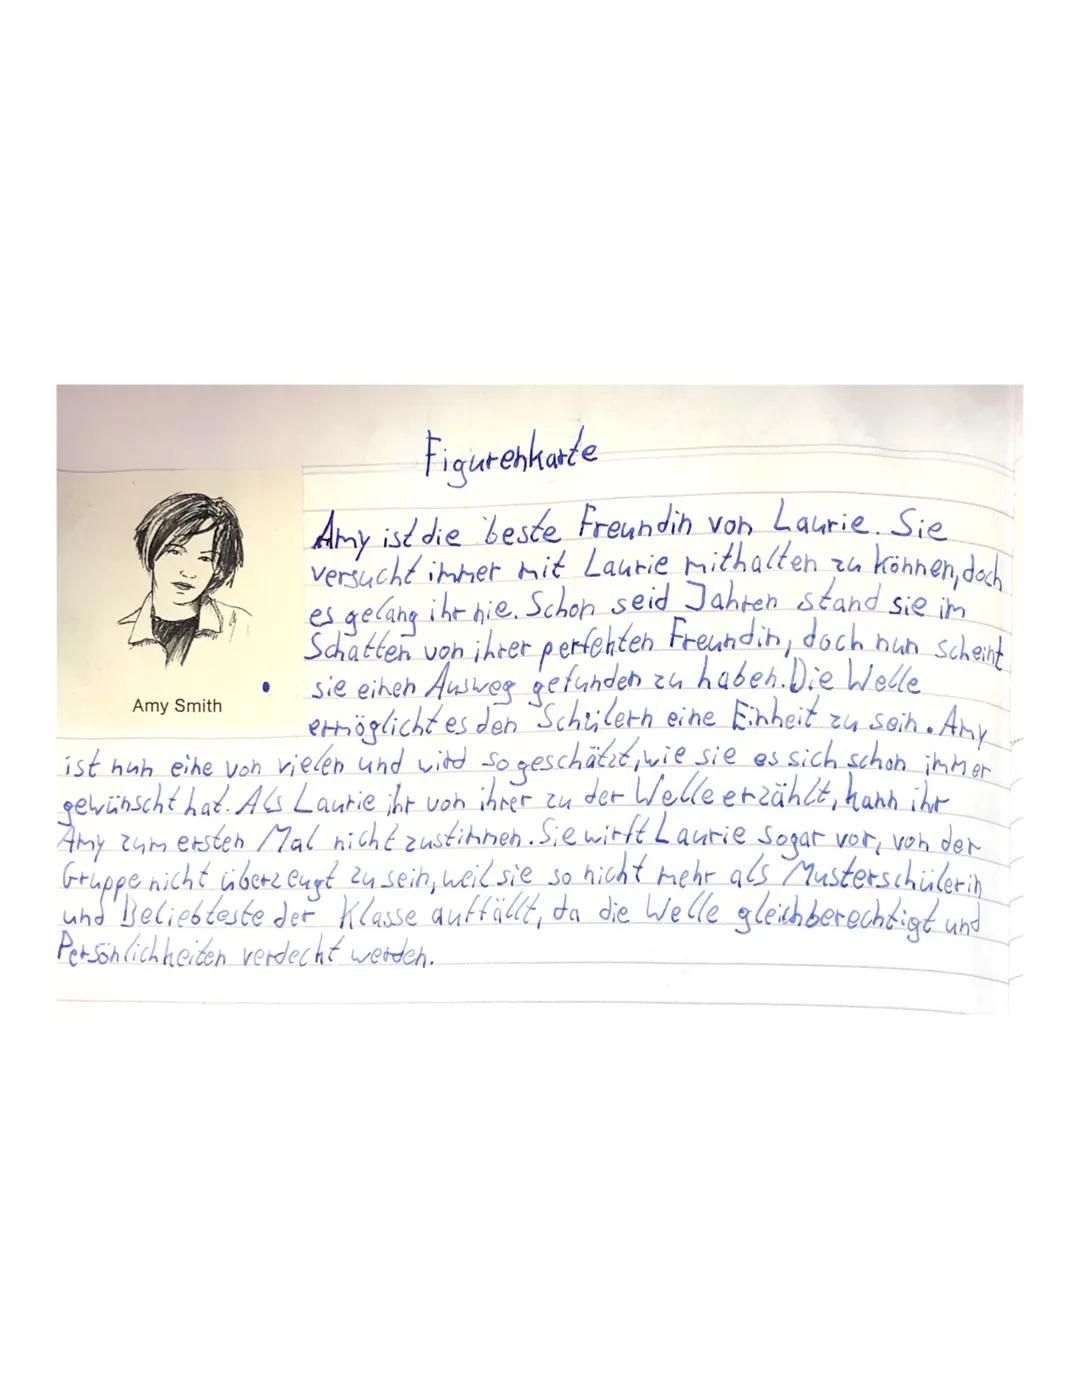 Figurenkarte
Amy ist die beste Freundin von Laurie. Sie
versucht immer mit Laurie mithalten zu können, doch
es gelang ihr nie. Schon seid Jahren stand sie im
Schatten von ihrer perfekten Freundin, doch nun scheint
sie einen Ausweg gefunden zu haben. Die Welle
Amy Smith
ermöglicht es den Schülern eine Einheit zu sein. Amy
ist nun eine von vielen und wird so geschätzt, wie sie es sich schon immer
gewünscht hat. Als Laurie ihr von ihrer zu der Welle erzählt, kann ihr
Amy zum ersten Mal nicht zustimmen. Sie wirft Laurie sogar vor, von der
Gruppe nicht überzeugt zu sein, weil sie so nicht mehr als Musterschülerin
und Beliebteste der Klasse auffällt, da die Welle gleichberechtigt und
Persönlichkeiten verdeckt werden.